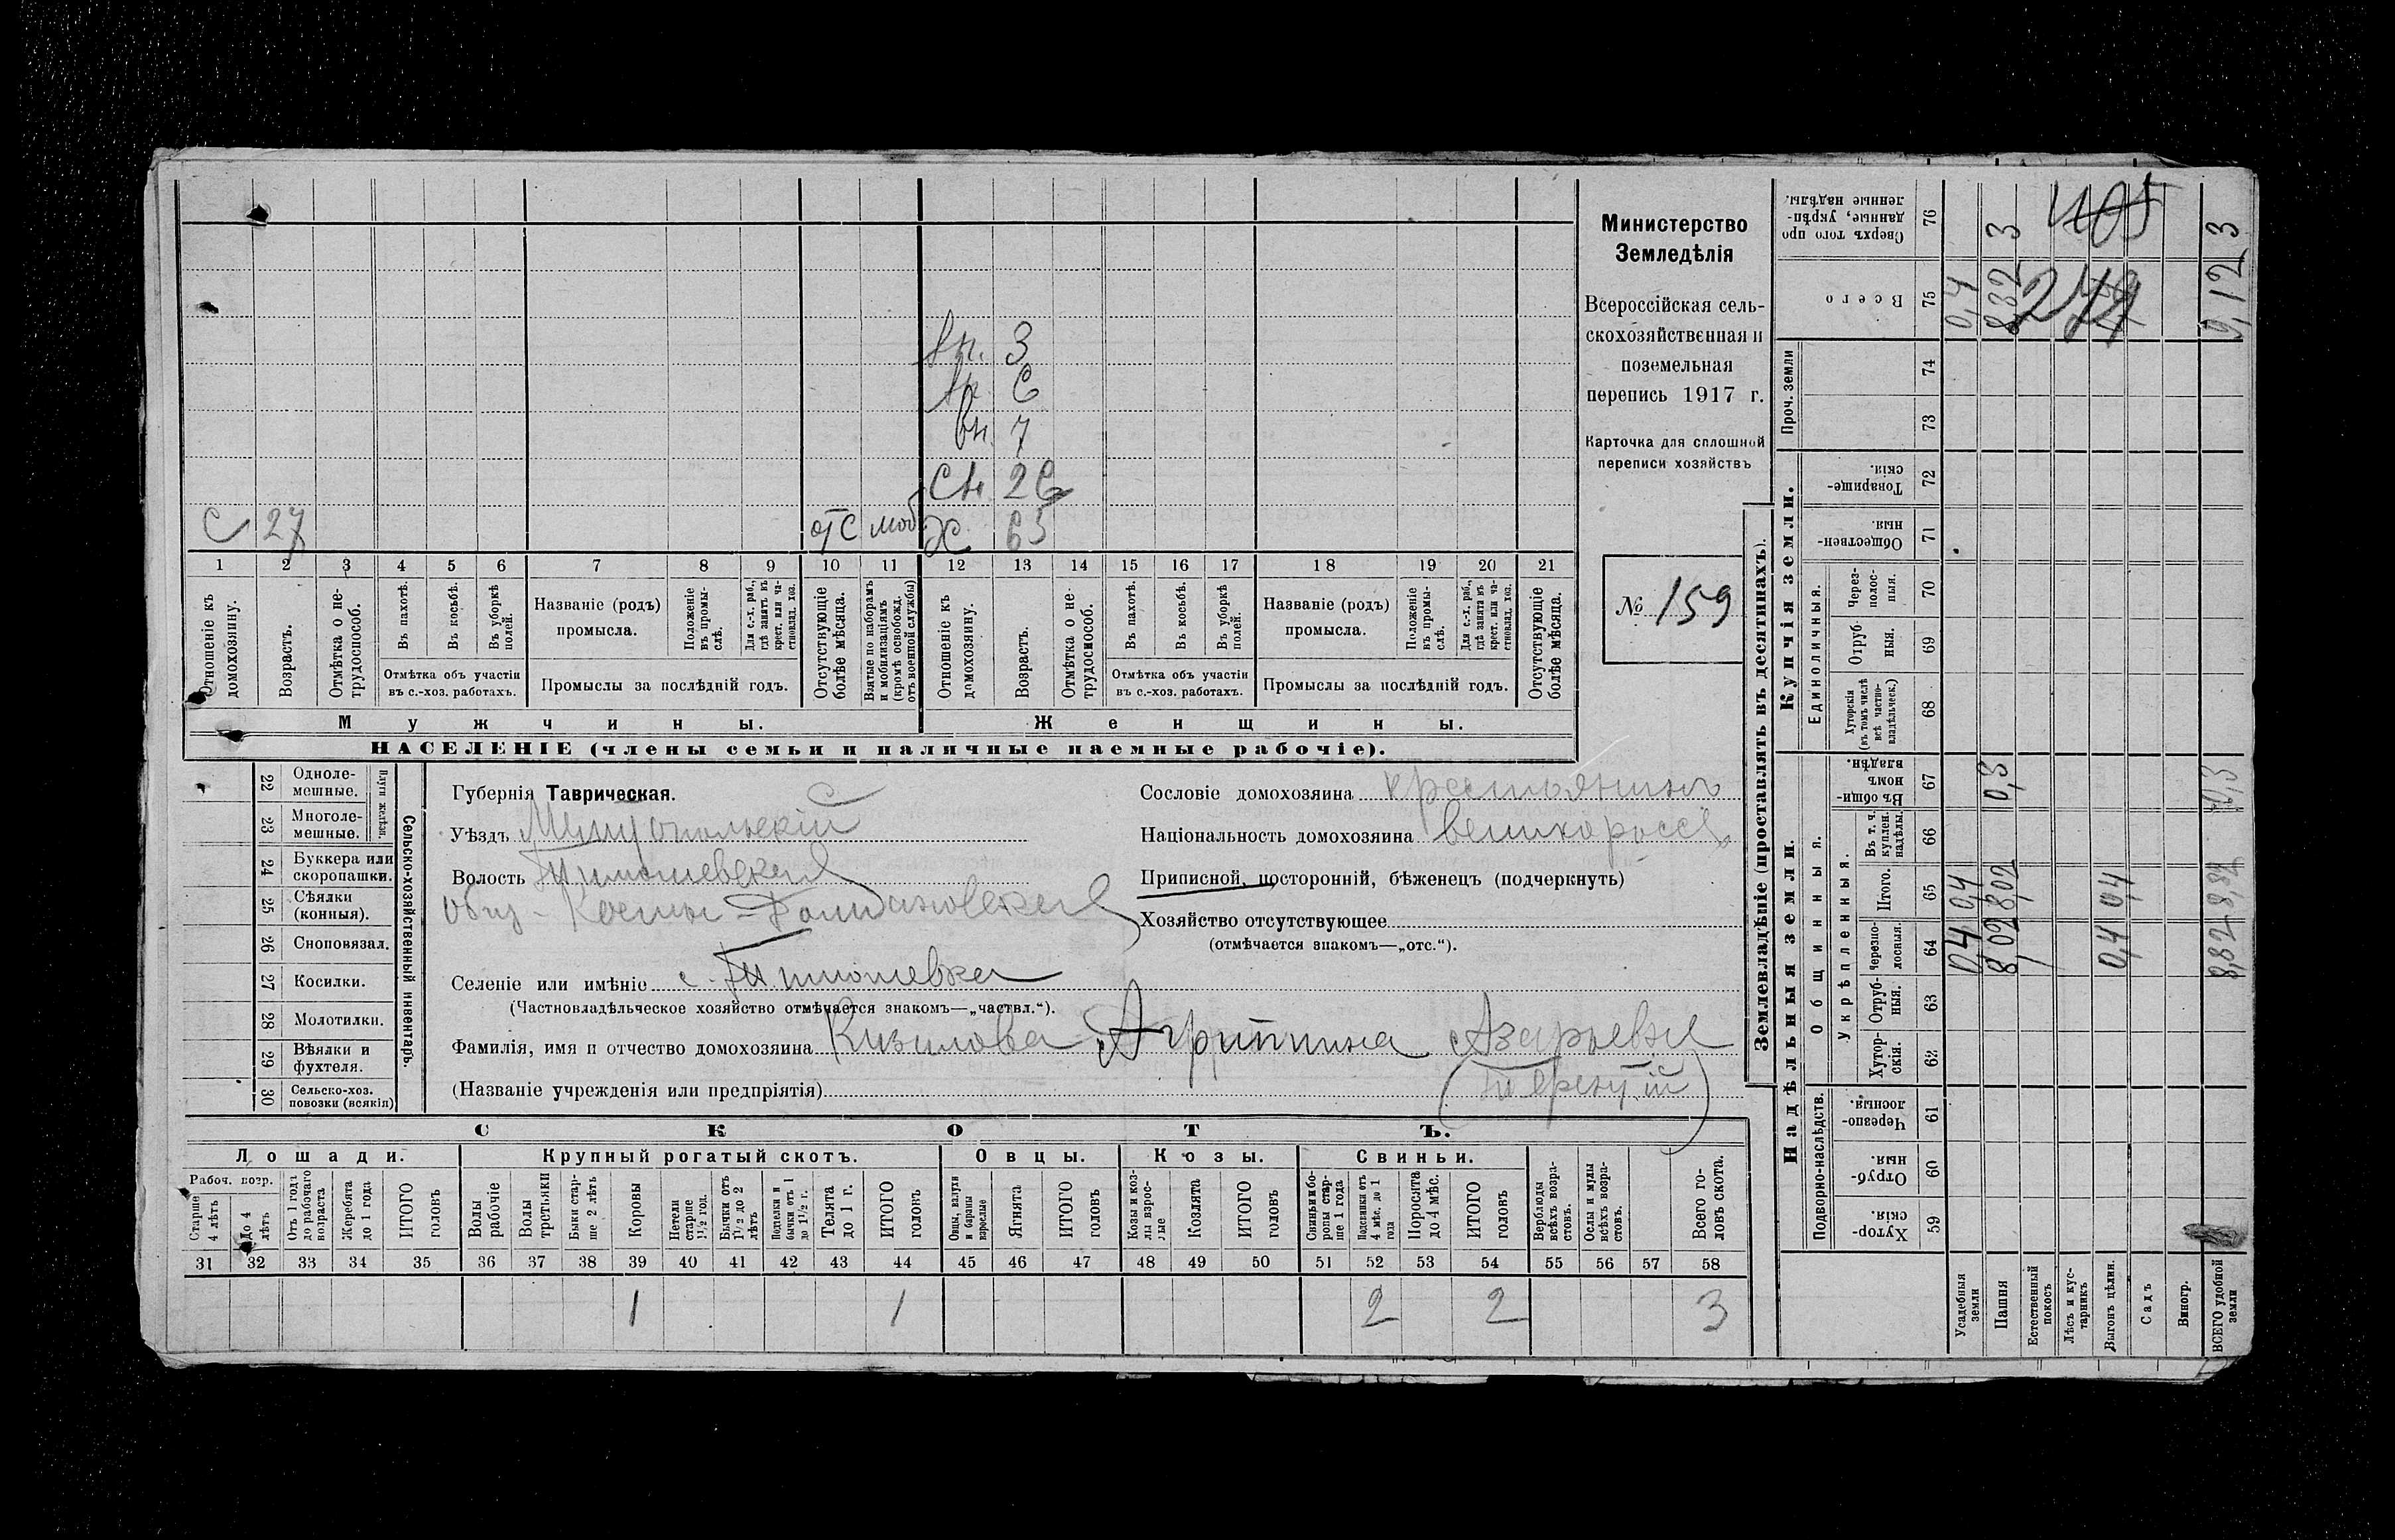 вн. 3
вн 6
вн. 7
Сн 26
С 27 отс моб Ж 65
1 2 3 4 5 6 7 8 9 10 11 12 13 14 15 16 17 18 19 20 21
Отношеніе къ домохозяину.
Возрастъ.
Отмѣтка о нетрудоспособ.
Въ пахотѣ.
Въ косьбѣ.
Въ уборкѣ полей.
Отмѣтка объ участіи въ с.-хоз. работахъ.
Названіе (родъ) промысла.
Положеніе въ промыслѣ.
Для с.-х. раб., гдѣ занятъ въ крест. или частновлад. хоз.
Промыслы за послѣдній годъ.
Отсутствующіе болѣе мѣсяца.
Взятые по наборамъ и мобилизаціямъ (кромѣ освобожд. отъ военной службы)
Отношеніе къ домохозяину.
Возрастъ.
Отмѣтка о нетрудоспособ.
Въ пахотѣ.
Въ косьбѣ.
Въ уборкѣ полей.
Отмѣтка объ участіи въ с.-хоз. работахъ.
Названіе (родъ) промысла.
Положеніе въ промыслѣ.
Для с.-х. раб., гдѣ занята въ крест. или частновлад. хоз.
Промыслы за послѣдній годъ.
Отсутствующіе болѣе мѣсяца.
Мужчины. Женщины.
НАСЕЛЕНІЕ (члены семьи и наличные наемные рабочіе).
Министерство
Земледѣлія
Всероссійская сель-
скохозяйственная и
поземельная
перепись 1917 г.
Карточка для сплошной
переписи хозяйствъ
№ 159
Сельско-хозяйственный инвентарь.
Плуги желѣзн.
22 Одноле-мешные.
23 Многоле-мешные.
24 Буккера или скоропашки.
25 Сѣялки (конныя).
26 Сноповязал.
27 Косилки.
28 Молотилки.
29 Вѣялки и фухтеля.
30 Сельско-хоз. повозки (всякія)
Губернія Таврическая.
Уѣздъ Мелитопольскій
Волость Тимошевская
Селеніе или имѣніе с. Тимошевка
(Частновладѣльческое хозяйство отмѣчается знакомъ—„частвл.“).
Фамилія, имя и отчество домохозяина Кизилова Агрипина Азарьевна
(Названіе учрежденія или предпріятія)
Сословіе домохозяина крестьянинъ
Національность домохозяина великороссъ
Приписной, посторонній, бѣженецъ (подчеркнуть)
Хозяйство отсутствующее
(отмѣчается знакомъ—„отс.“).
СКОТЪ.
Лошади. Крупный рогатый скотъ. Овцы. Козы. Свиньи.
Рабоч. возр.
Старше 4 лѣтъ
До 4 лѣтъ
Отъ 1 года до рабочаго возраста
Жеребята до 1 года
ИТОГО головъ
Волы рабочіе
Волы третьяки
Быки старше 2 лѣтъ
Коровы
Нетели старше 1½ год.
Бычки отъ 1½ до 2 лѣтъ
Подтелки и бычки отъ 1 до 1½ г.
Телята до 1 г.
ИТОГО головъ
Овцы, валухи и бараны взрослые
Ягнята
ИТОГО головъ
Козы и козлы взрослые
Козлята
ИТОГО головъ
Свиньи и боровы старше 1 года
Подсвинки отъ 4 мѣс. до 1 года
Поросята до 4 мѣс.
ИТОГО головъ
Верблюды всѣхъ возрастовъ.
Ослы и мулы всѣхъ возрастовъ.
Всего головъ скота.
31 32 33 34 35 36 37 38 39 40 41 42 43 44 45 46 47 48 49 50 51 52 53 54 55 56 57 58
1 1 2 2 3
Землевладѣніе (проставлять въ десятинахъ).
Надѣльныя земли. Купчія земли. Проч. земли
Подворно-наслѣдств.
Общинныя.
Укрѣпленныя.
Единоличныя.
Хутор-скія. 59
Отруб-ныя. 60
Черезпо-лосныя. 61
Хутор-скія. 62
Отруб-ныя. 63
Черезпо-лосныя. 64
Итого. 65
Въ т. ч. куплен. надѣлы. 66
Въ общин-номъ владѣн. 67
Хуторскія (въ томъ числѣ всѣ частновладѣльческ.) 68
Отруб-ныя. 69
Через-полос-ныя. 70
Обществен-ныя. 71
Товарище-скія. 72
73
74
Всего 75
Сверхъ того проданные, укрѣпленные надѣлы. 76
Усадебныя земли 0,4 0,4 0,4
Пашня 8,02 8,02 0,3 832 3
Естественный покосъ
Лѣсъ и кустарникъ
Выгонъ цѣлин. 0,4 0,4
Садъ
Виногр.
ВСЕГО удобной земли 8,82 8,82 0,3 9,12 3